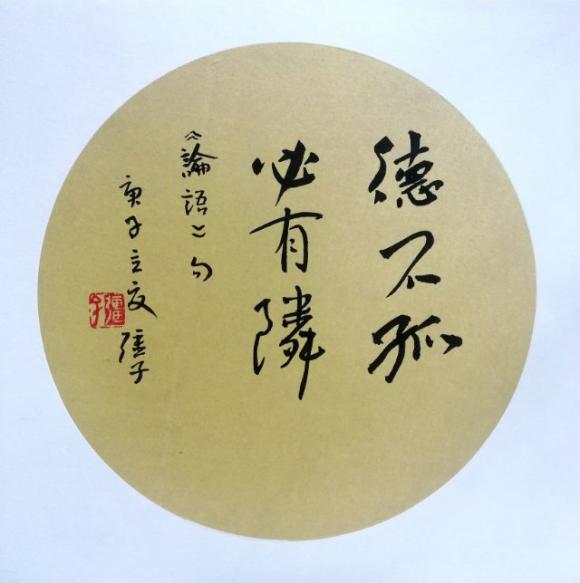 德不孤
必有隣
《論語》句
庚子立夏